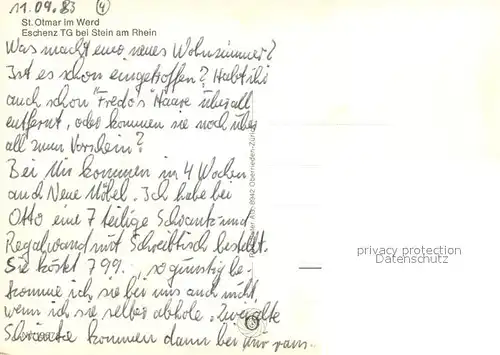 11.09.83 (4)
St. Otmar im Werd
Eschenz TG bei Stein am Rhein
Was macht euer neues Wohnzimmer?
Ist es schon eingetroffen? Habt ihr
auch schon "Fredo's" Haare überall
entfernt, oder kommen sie noch über
all zum Vorschein?
Bei Uns kommen in 4 Wochen
auch Neue Möbel. Ich habe bei
Otto eine 7 teilige Schrank-und
Regalwand mit Schreibtisch bestellt.
Sie kostet 799.-, so günstig be-
komme ich sie bei uns auch nicht,
wenn ich sie selber abhole. Zwei alte
Schränke kommen dann bei mir raus.
8942 Oberrieden-Zürich
privacy protection
Datenschutz